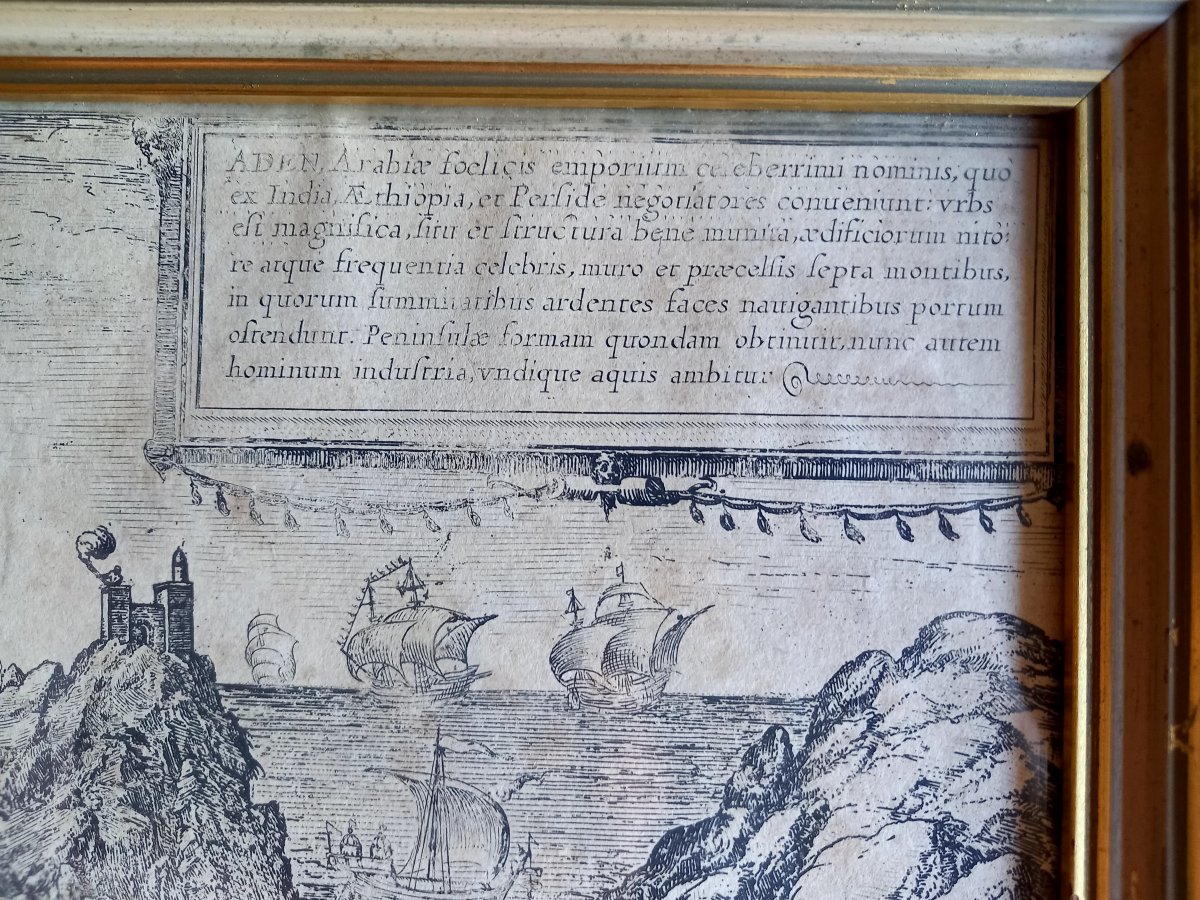 ADEN, Arabiæ foelicis emporium celeberrimi nominis, quò
ex India, Æthiopia, et Perside negotiatores conueniunt: vrbs
est magnifica, situ et structura bene munita, ædificiorum nito:
re atque frequentia celebris, muro et præcelsis septa montibus,
in quorum summitatibus ardentes faces nauigantibus portum
ostendunt. Peninsulæ formam quondam obtinuit, nunc autem
hominum industria, vndique aquis ambitur